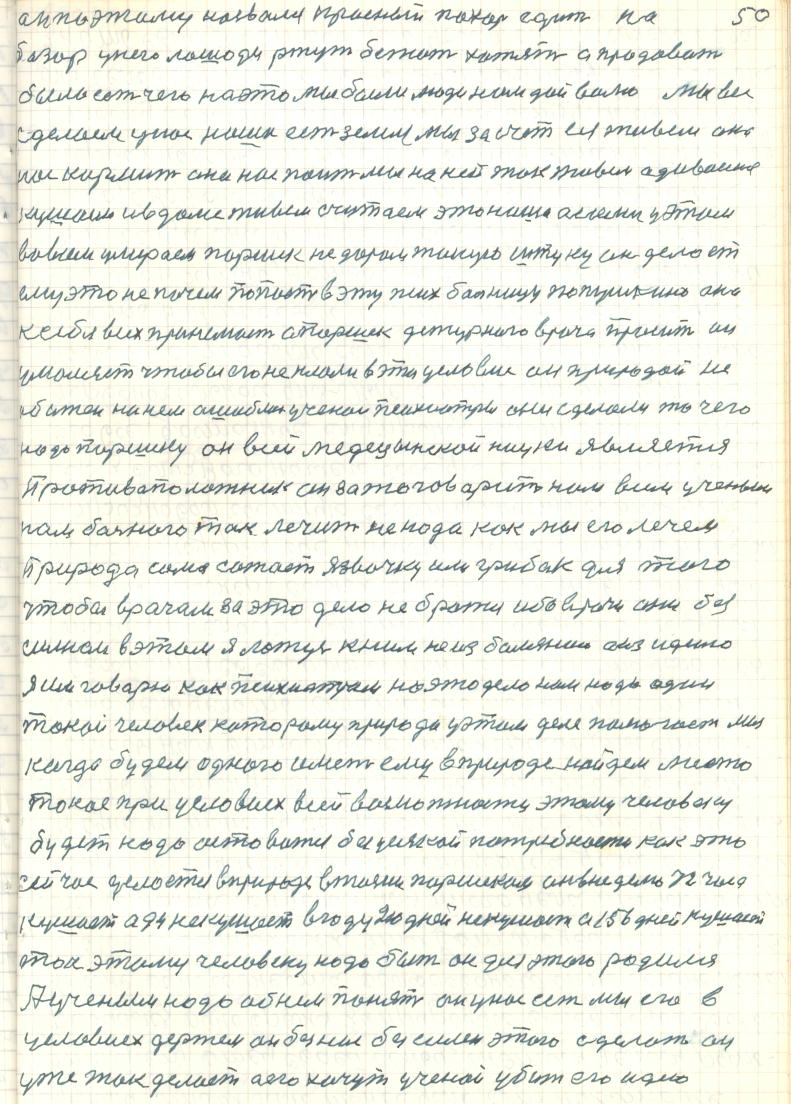 ан поэтомуназвали Красный пахар едит на 50
базар унего лошоди ржут бежат хотят а продоват
было ест чего наэто мы были люди нам дай волю мы все
сделаем унас наша ест земля мы за счёт ея живем она
нас кормит она нас поит мы на ней так живем адиваемся
кушаем и в доме живем считаем это наша а сами у этом
во всем умираем паршек недаром такую штуку он делает
ему это не почем попаст в эту псих болницу она
к себя всех принемает а паршек детурного врача просит он
умоляет чтобы его не клали в эти условие он природай не
обижен на нем ошиблис ученаи психиатры они сделали то чего
надо паршику он всей медецынской науки является
Противаположник он зато говарит нам всем ученым
нам балного так лечит не нада как мы его лечем
Природа сама сажает язвочку или грибак для того
чтобы врачам за это дело не братся ибо врачи они без
силнаи в этом я ложус к ним не из за болезни а из идею
я им говарю как психиатрам на это дело нам надо один
такой человек катораму природа у этом деле помогает мы
когда будем одного имет ему в природе найдем место
такое при условиех всей возможности этому человеку
будет надо оставатся без всякой потребности как это
сейчас делается в природе втаями паршеком он в неделю 72 часа
кушает а 94 не кушает в году 210 дней некушает а 156 дней кушает
так этому человеку надо быт он для этого родился
А ученым надо об нем понят он у нас ест мы его в
условиех держем он без нас без силен этого сделат он
уже так делает а его хочут ученаи убит его идею